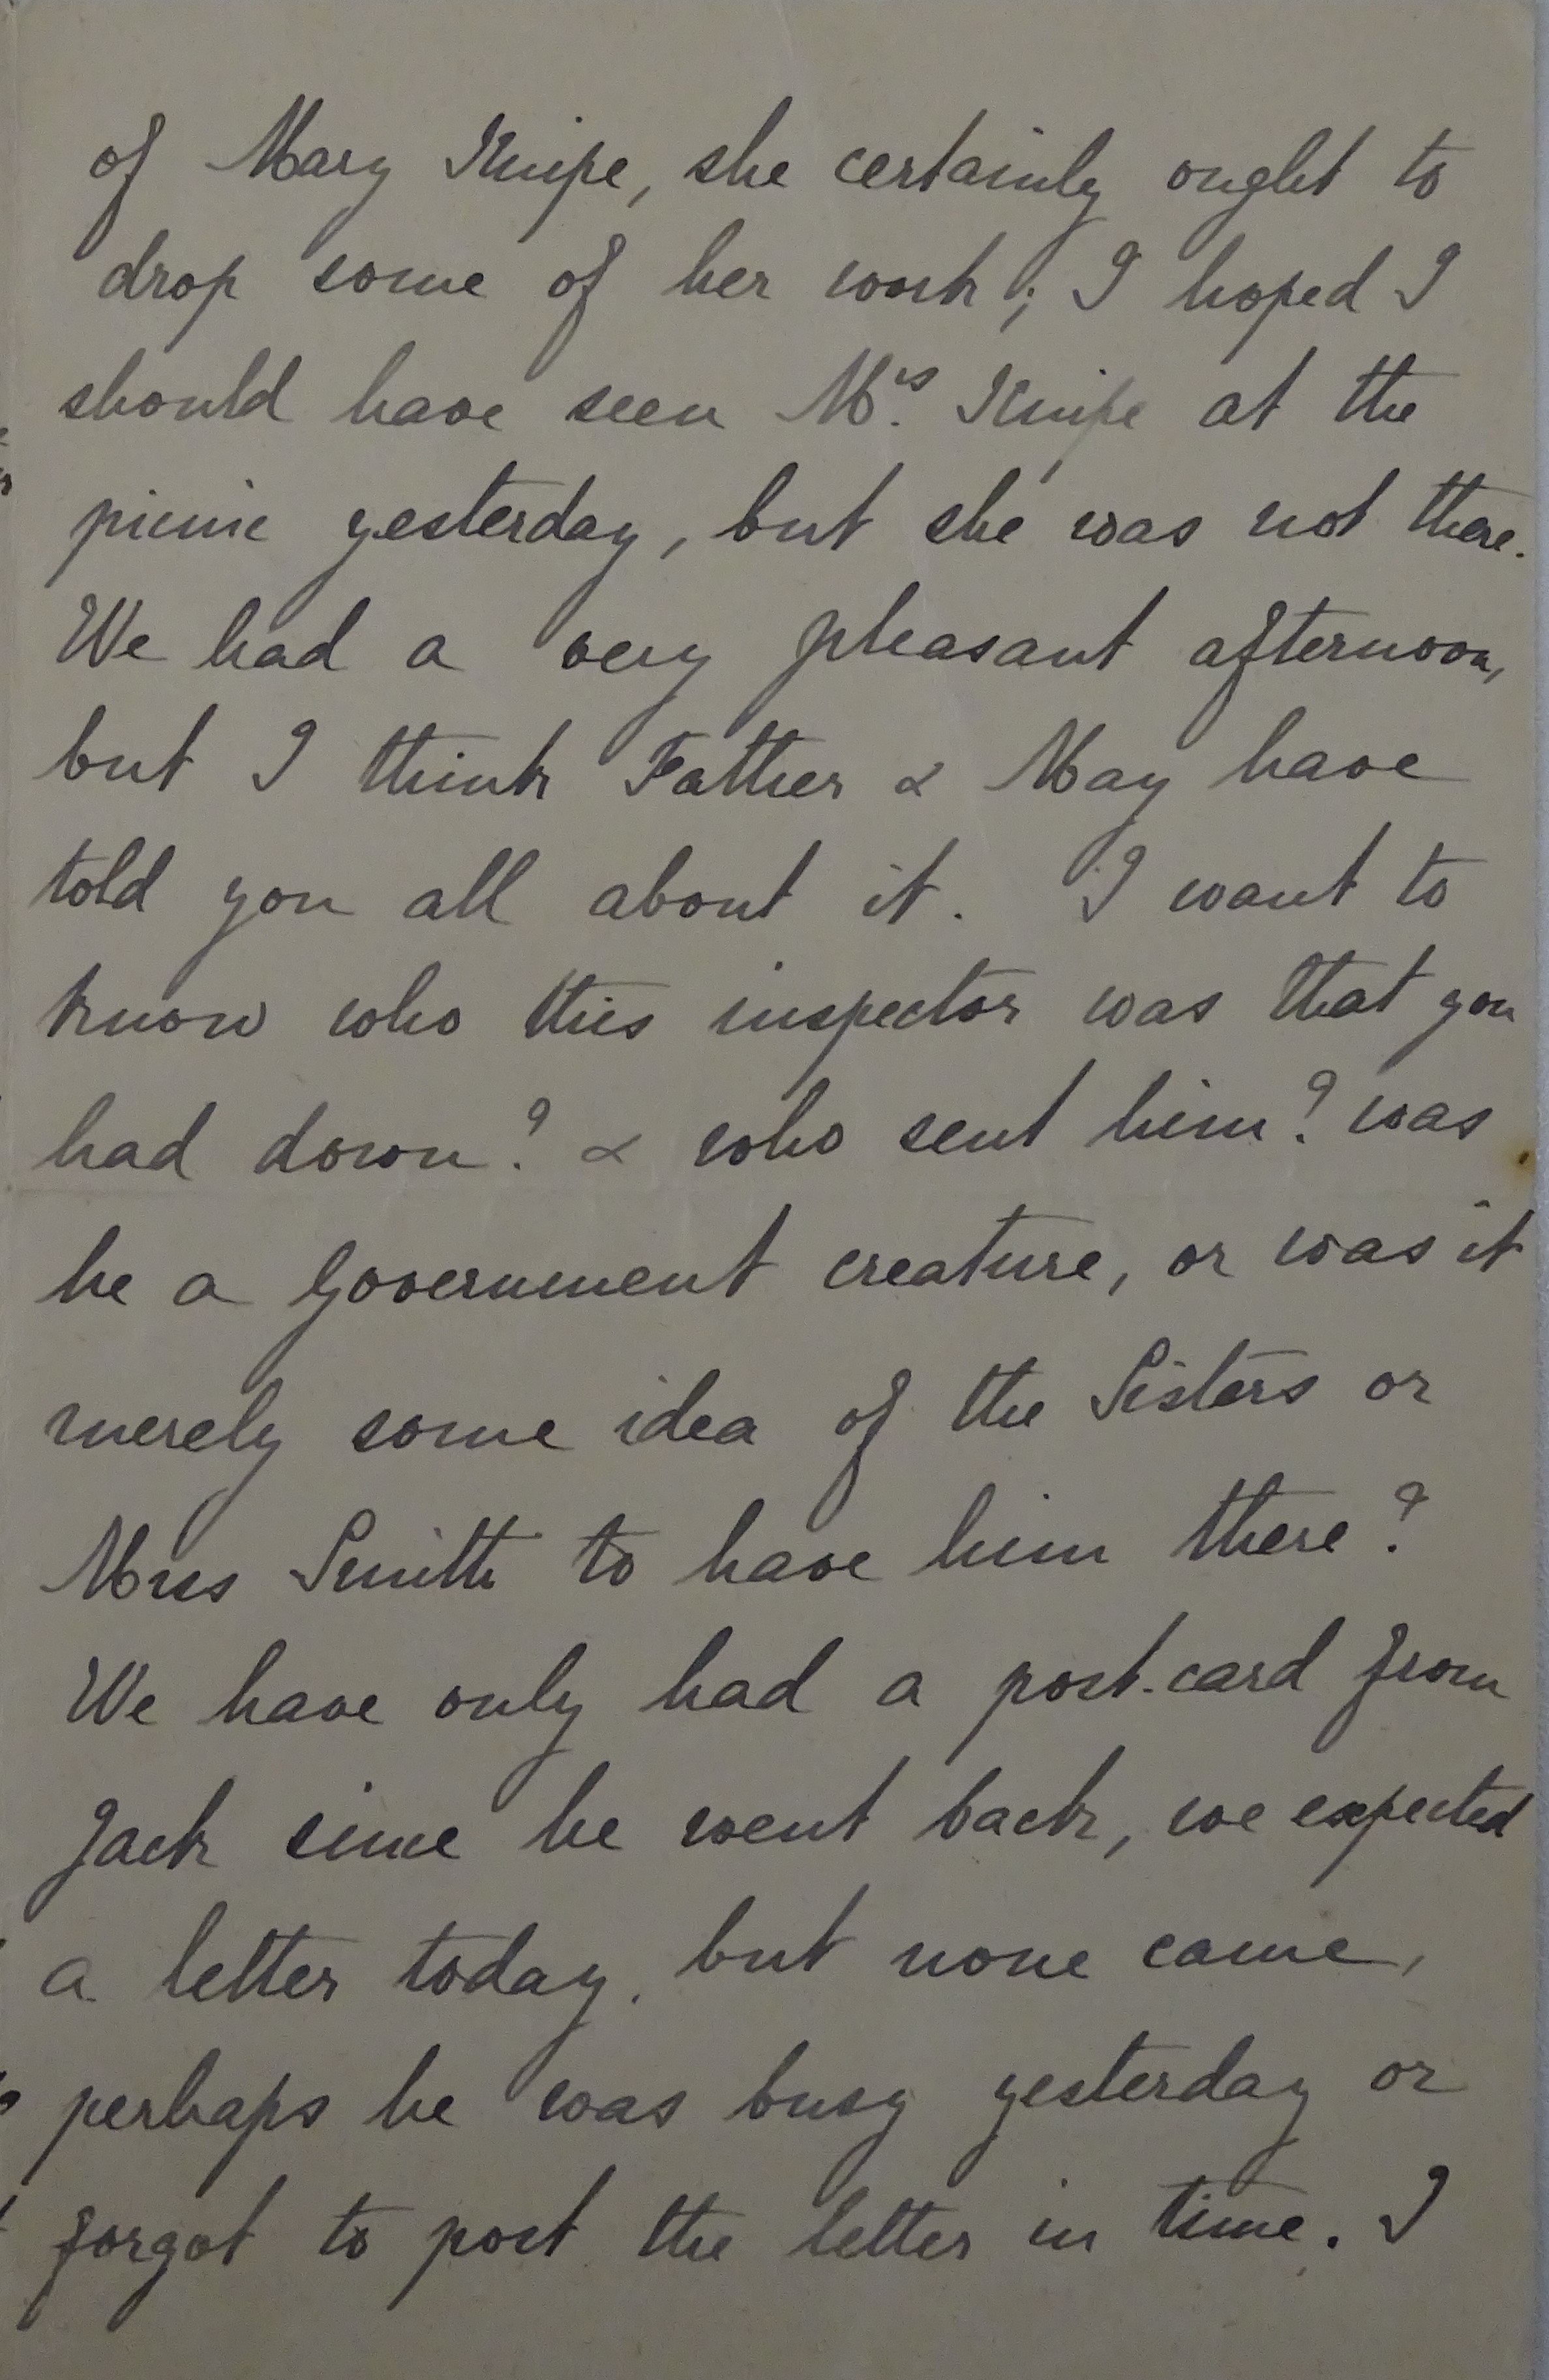 of Mary Knipe, she certainly ought to
drop some of her work; I hoped I
should have seen Mrs. Knipe at the
picnic yesterday, but she was not there.
We had a very pleasant afternoon,
but I think Father & May have
told you all about it. I want to
know who this inspector was that you
had down? & who sent him? was
he a Government creature, or was it
merely some idea of the Sisters or
Miss Smith to have him there?
We have only had a post-card from
Jack since he went back, we expected
a letter today, but none came,
perhaps he was busy yesterday or
forgot to post the letter in time. I